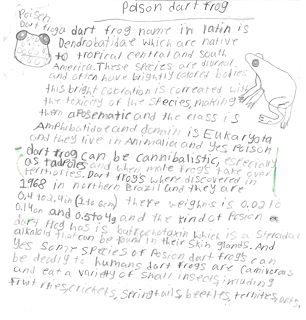 Poison dart frog
Poisen
Dart froga dart frog name in latin is
Dendrobatidae which are native
to tropical central and south
America. These species are diurnal
and often have brightly colored bodies
this bright coloration is correlated with
the toxicity of the species, making
them aposematic and the class is
Amphubatidae and domain is Eukaryota
and they live in Animalia and yes Poison
dart frog can be cannibalistic, especially
as tadpoles and when male frogs take over
territories. Dart frogs where discovered in
1968 in northern Brazil and they are
0.4 to 2.4in (1 to 6cm) there weighns is 0.02 to
0.14on and 0.5to4g and the kind of Posion
dart frog has is butrochotaxin which is a steroidal
alkaloid that can be found in their skin glands. And
yes some species of Posion dart frogs can
be deadly to humans, dart frogs are carnivoras
and eat a variety of small insects, including
fruit flies, crickets, springtails, beetles, termites, ants